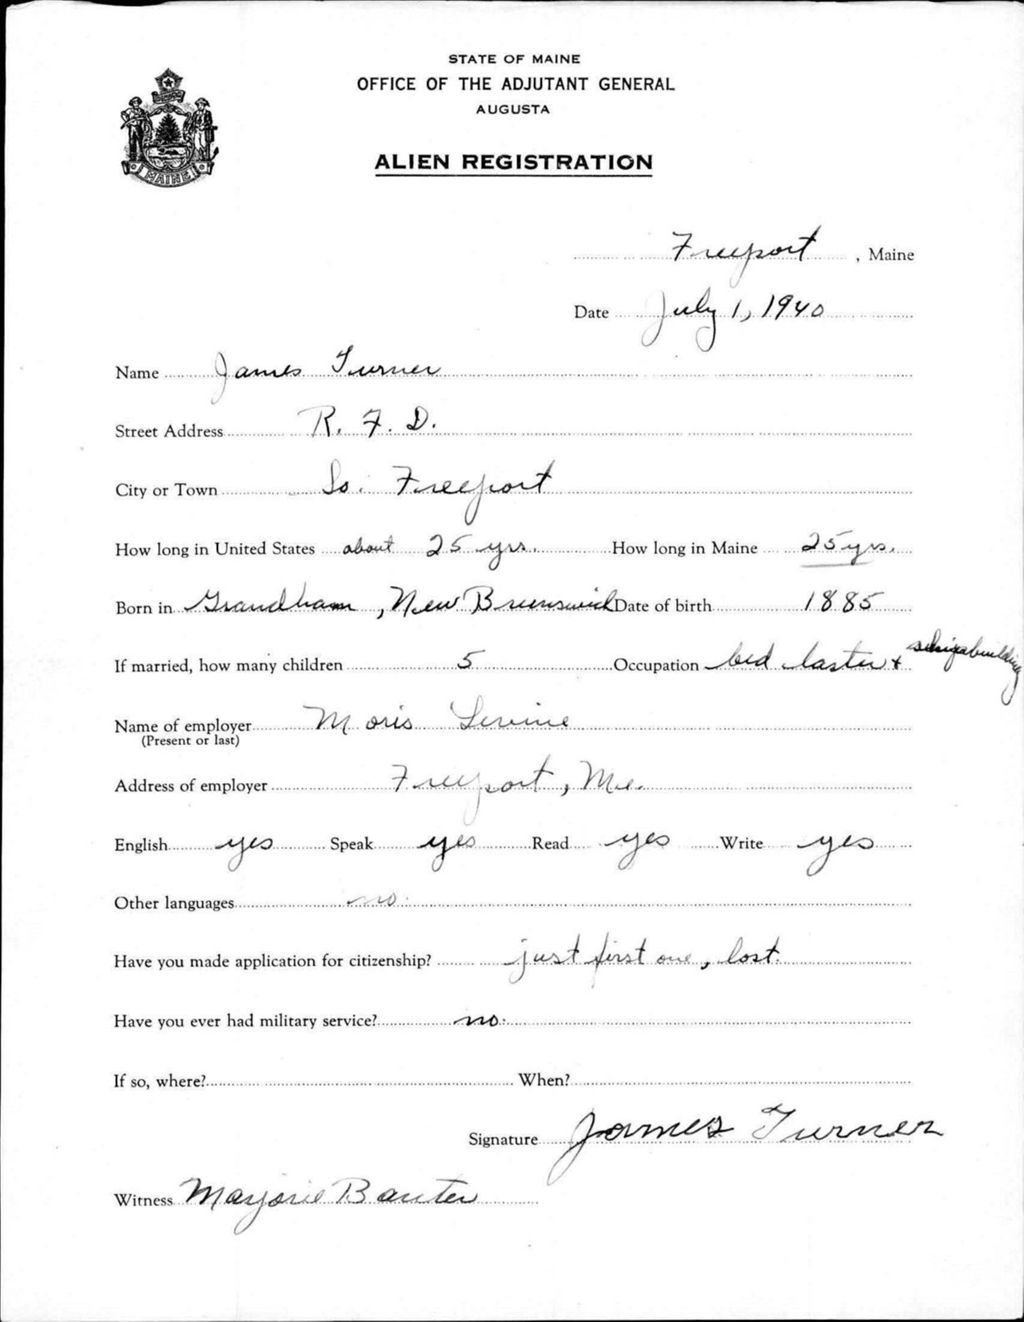 STATE OF MAINE
OFFICE OF THE ADJUTANT GENERAL
AUGUSTA
ALIEN REGISTRATION
MAINE
Freeport, Maine
Date July 1, 1940
Name James Turner
Street Address R. F. D.
City or Town So. Freeport
How long in United States about 25 yrs. How long in Maine 25 yrs.
Born in Grandham, New Brunswick Date of birth 1885
If married, how many children 5 Occupation bed laster +
Name of employer Moris Levine
(Present or last)
Address of employer Freeport, Me.
English yes Speak yes Read yes Write yes
Other languages no.
Have you made application for citizenship? just first one, lost.
Have you ever had military service? no.
If so, where? When?
Signature James Turner
Witness Marjorie Baxter